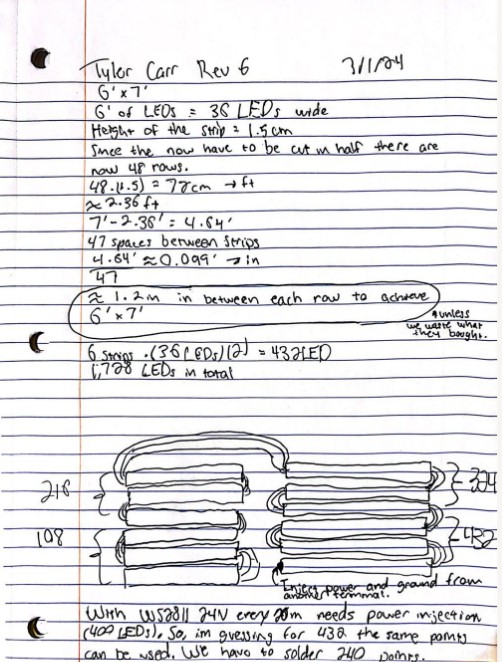 Tylor Carr Rev 6 3/1/24
6' x 7'
6' of LEDs = 36 LEDs wide
Height of the strip = 1.5cm
Since the now have to be cut in half there are
now 48 rows.
48.(1.5) = 72cm → ft
≈ 2.36 ft
7' - 2.36' = 4.64'
47 spaces between strips
4.64' ≈ 0.099' → in
47
≈ 1.2in in between each row to achieve
6' x 7'
*unless
we waste what
they bought.
6 Strips .(36 LEDs)(2) = 432LED
1,728 LEDs in total
216
324
108
432
Inject power and ground from
another terminal.
With WS2811 24V every 20m needs power injection
(400 LEDs). So, im guessing for 432 the same points
can be used. We have to solder 240 points.